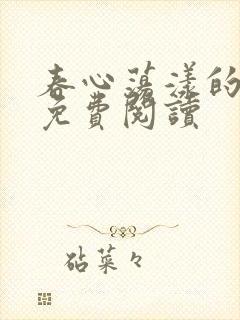 春心蕩漾的
免費閱讀
砧菜々